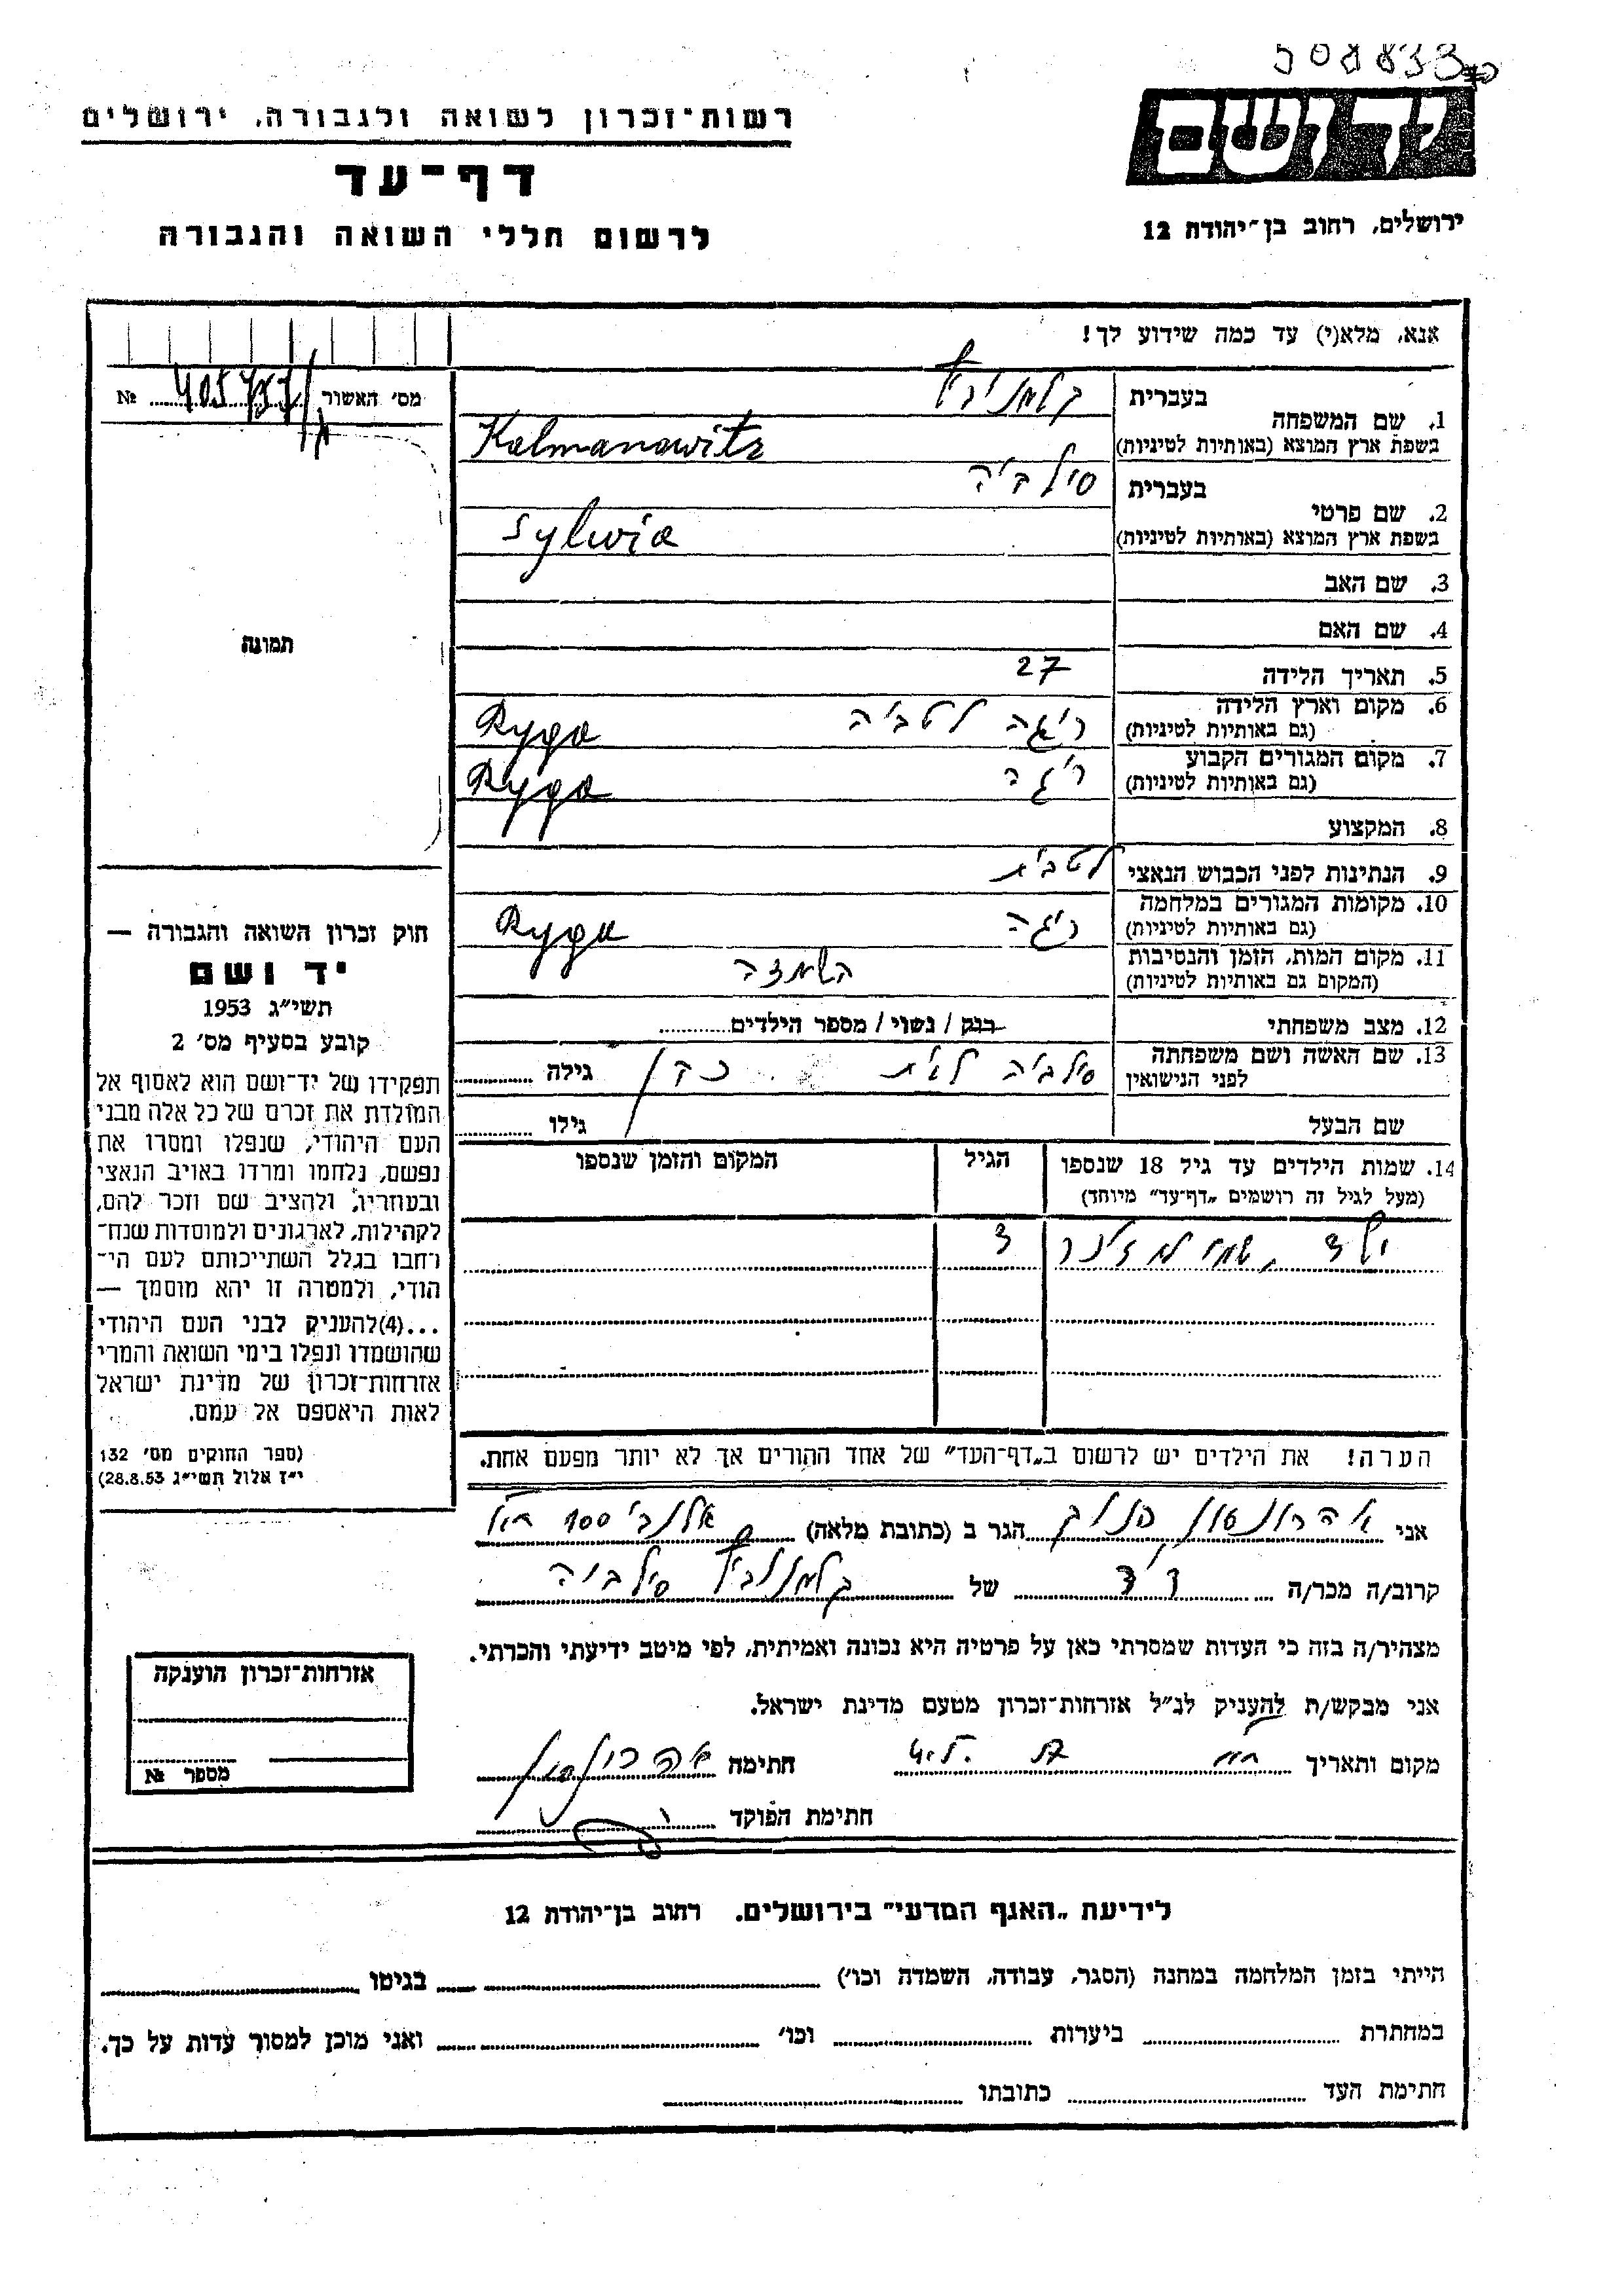 508833
רשות-זכרון לשואה ולגבורה, ירושלים
דף-עד
לרשום חללי השואה והגבורה
ידושם
ירושלים, רחוב בן-יהודה 12
אנא, מלא(י) עד כמה שידוע לך!
מס' האשור № 405737
1. שם המשפחה
בעברית
בשפת ארץ המוצא (באותיות לטיניות) Kalmanowitz
2. שם פרטי
בעברית סילביה
בשפת ארץ המוצא (באותיות לטיניות) Sylwia
3. שם האב
4. שם האם
5. תאריך הלידה 27
6. מקום וארץ הלידה (גם באותיות לטיניות) ריגה לטביה Ryga
7. מקום המגורים הקבוע (גם באותיות לטיניות) ריגה Ryga
8. המקצוע
9. הנתינות לפני הכבוש הנאצי לטבית
10. מקומות המגורים במלחמה (גם באותיות לטיניות) ריגה Ryga
11. מקום המות, הזמן והנסיבות (המקום גם באותיות לטיניות) השמדה
12. מצב משפחתי רנק / נשוי / מספר הילדים
13. שם האשה ושם משפחתה לפני הנישואין סילביה לבית גילה
שם הבעל גילו
14. שמות הילדים עד גיל 18 שנספו
(מעל לגיל זה רושמים „דף-עד" מיוחד)
הגיל
המקום והזמן שנספו
ילד
3
הערה! את הילדים יש לרשום ב„דף-העד" של אחד ההורים אך לא יותר מפעם אחת.
תמונה
חוק זכרון השואה והגבורה —
יד ושם
תשי"ג 1953
קובע בסעיף מס' 2
תפקידו של יד-ושם הוא לאסוף אל
המולדת את זכרם של כל אלה מבני
העם היהודי, שנפלו ומסרו את
נפשם, נלחמו ומרדו באויב הנאצי
ובעוזריו, ולהציב שם וזכר להם,
לקהילות, לארגונים ולמוסדות שנח-
רחבו בגלל השתייכותם לעם הי-
הודי, ולמטרה זו יהא מוסמך —
...(4)להעניק לבני העם היהודי
שהושמדו ונפלו בימי השואה והמרי
אזרחות-זכרון של מדינת ישראל
לאות היאספם אל עמם.
(ספר החוקים מס' 132
י"ז אלול תשי"ג 28.8.53)
אני אהרונסון הגר ב (כתובת מלאה) אלנבי 100
קרוב/ה מכר/ה דוד של סילביה
מצהיר/ה בזה כי העדות שמסרתי כאן על פרטיה היא נכונה ואמיתית, לפי מיטב ידיעתי והכרתי.
אני מבקש/ת להעניק לנ"ל אזרחות-זכרון מטעם מדינת ישראל.
מקום ותאריך חתימה אהרונסון
חתימת הפוקד
אזרחות-זכרון הוענקה
מספר №
לידיעת „האגף המדעי" בירושלים. רחוב בן-יהודה 12
הייתי בזמן המלחמה במחנה (הסגר, עבודה, השמדה וכו') בגיטו
במחתרת ביערות וכו' ואני מוכן למסור עדות על כך.
חתימת העד כתובתו